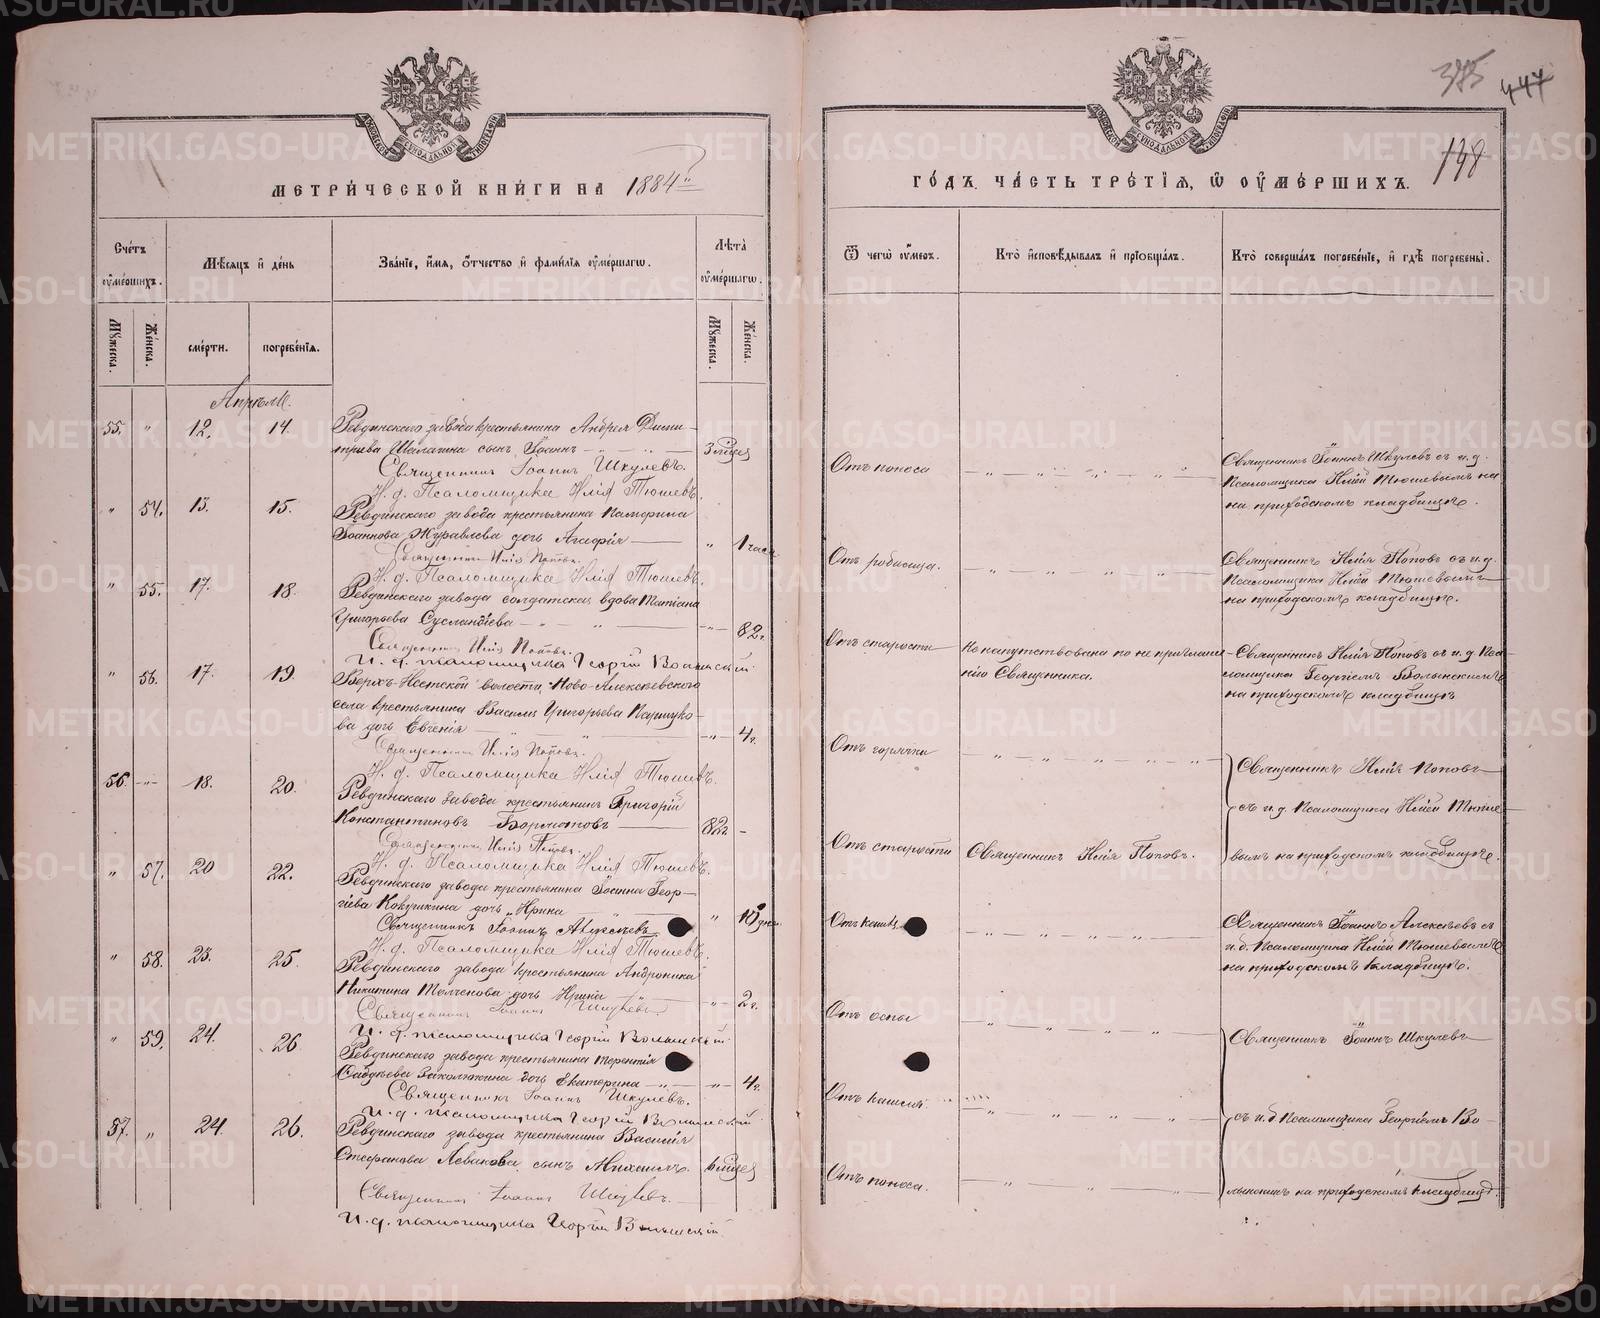 375 447
138
МЕТРИЧЕСКОЙ КНИГИ НА 1884й
ГОДЪ, ЧАСТЬ ТРЕТІЯ, Ѿ ОУМЕРШИХЪ.
Счетъ оумершихъ.
Мѣсяцъ и день
Званіе, имя, отчество и фамилія оумершагѡ.
Лѣта оумершагѡ.
Ѿ чегѡ оумеръ.
Кто исповѣдывалъ и пріобщалъ.
Кто совершалъ погребеніе, и гдѣ погребены.
Мужеска. Женска. смерти. погребенія. Мужеска. Женска.
Апрѣль.
55. " 12. 14. Ревдинскаго завода крестьянина Андрея Дими-
тріева сынъ Іоаннъ 3 мѣсяц
Священникъ Іоаннъ Шкулевъ.
И. д. Псаломщика Илія Тюшевъ.
Отъ поноса
Священникъ Іоаннъ Шкулевъ съ и. д.
Псаломщика Иліей Тюшевымъ на
на приходскомъ кладбищѣ.
" 54. 13. 15. Ревдинскаго завода крестьянина Памфила
Іоаннова Журавлева дочь Агафія " 1 часа
Священникъ Илія Поповъ.
И. д. Псаломщика Илія Тюшевъ.
Отъ родимца.
Священникъ Илія Поповъ съ и. д.
Псаломщика Иліей Тюшевымъ
на приходскомъ кладбищѣ.
" 55. 17. 18. Ревдинскаго завода солдатская вдова Татіана
Григорьева 82 г.
Священникъ Илія Поповъ.
И. д. псаломщика Георгій Волынскій.
Отъ старости
Не напутствована по не приглаше-
нію Священника.
Священникъ Илія Поповъ съ и. д. Пса-
ломщика Георгіемъ Волынскимъ
на приходскомъ кладбищѣ
" 56. 17. 19. волости, Ново-Алексѣевскаго
села крестьянина Василія Григорьева
ва дочь Евгенія 4 г.
Священникъ Илія Поповъ.
И. д. Псаломщика Илія Тюшевъ.
Отъ горячки
Священникъ Илія Поповъ
56. 18. 20. Ревдинскаго завода крестьянинъ Григорій
Константиновъ Бормотовъ 82 г.
Священникъ Илія Поповъ.
И. д. Псаломщика Илія Тюшевъ.
Отъ старости
Священникъ Илія Поповъ.
съ и. д. Псаломщика Иліей Тюше-
вымъ на приходскомъ кладбищѣ.
" 57. 20 22. Ревдинскаго завода крестьянина Іоанна Геор-
гіева Кокушкина дочь Ирина " 10 дне
Священникъ Іоаннъ Алексѣевъ
И. д. Псаломщика Илія Тюшевъ.
Отъ кашл
Священникъ Іоаннъ Алексѣевъ съ
и. д. Псаломщика Иліей Тюшевымъ
на приходскомъ кладбищѣ.
" 58. 23. 25. Ревдинскаго завода крестьянина Андроника
Никитина дочь Ирина 2 г.
Священникъ Іоаннъ Шкулевъ.
И. д. псаломщика Георгій Волынскій.
Отъ оспы
Священникъ Іоаннъ Шкулевъ
" 59. 24. 26. Ревдинскаго завода крестьянина Терентія
дочь Екатерина 4 г.
Священникъ Іоаннъ Шкулевъ.
И. д. псаломщика Георгій Волынскій.
Отъ кашля.
съ и. д. Псаломщика Георгіемъ Во-
57. " 24. 26. Ревдинскаго завода крестьянина Василія
Стефанова Левакова сынъ Михаилъ. 6 мѣсяц
Священникъ Іоаннъ Шкулевъ.
И. д. псаломщика Георгій Волынскій.
Отъ поноса.
лынскимъ на приходскомъ кладбищѣ.